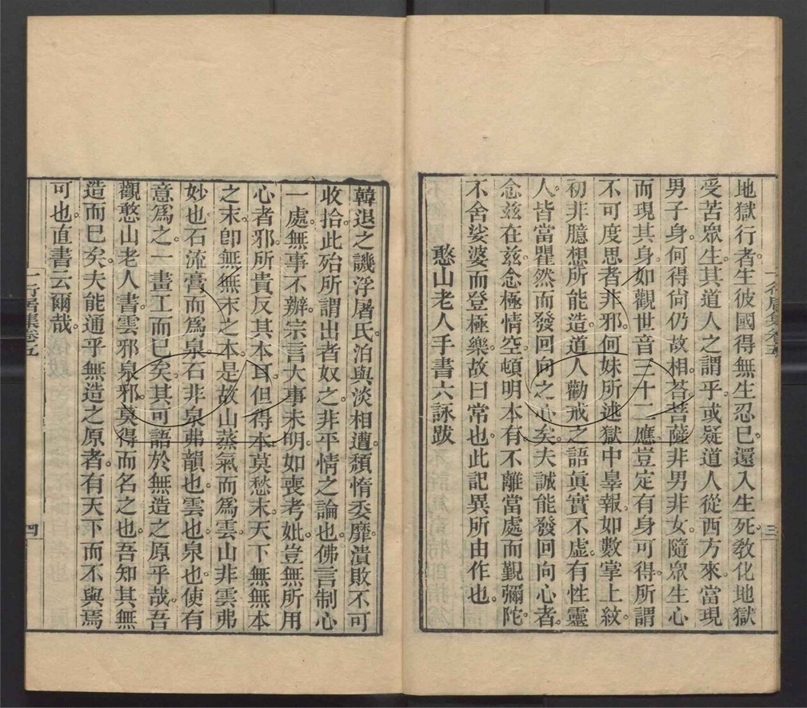 地獄行者生彼國得無生忍已還入生死敎化地獄
受苦眾生其道人之謂乎或疑道人從西方來當現
男子身何得尙仍故相荅菩薩非男非女隨眾生心
而現其身如觀世音三十二應豈定有身可得所謂
不可度思者非邪何妹所述獄中辠報如數掌上紋
初非臆想所能造道人勸戒之語眞實不虛有性靈
人皆當瞿然而發回向之心矣夫誠能發回向心者
念兹在兹念極情空頓明本有不離當處而覲彌陀
不舍娑婆而登極樂故曰常也此記異所由作也
憨山老人手書六詠跋
韓退之譏浮屠氏泊與淡相遭頹惰委靡潰敗不可
收拾此殆所謂出者奴之非平情之論也佛言制心
一處無事不辦宗言大事未明如喪考妣豈無所用
心者邪所貴反其本耳但得本莫愁末天下無無本
之末卽無無末之本是故山蒸氣而爲雲山非雲弗
妙也石流膏而爲泉石非泉弗韻也雲也泉也使有
意爲之一畫工而已矣其可語於無造之原乎哉吾
觀憨山老人書雲邪泉邪莫得而名之也吾知其無
造而已矣夫能通乎無造之原者有天下而不與焉
可也直書云爾哉
一行居集卷五
四